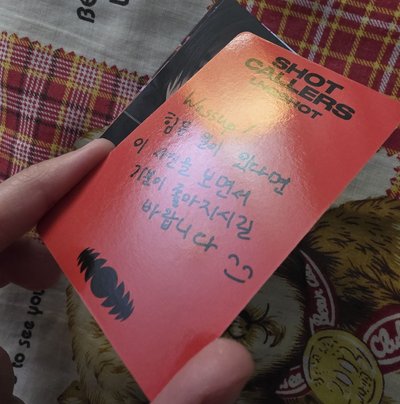 SHOT
CALLERS
JACKSHOT
힘든 일이 있다면
이 사진을 보면서
기분이 좋아지시길
바랍니다
to see you